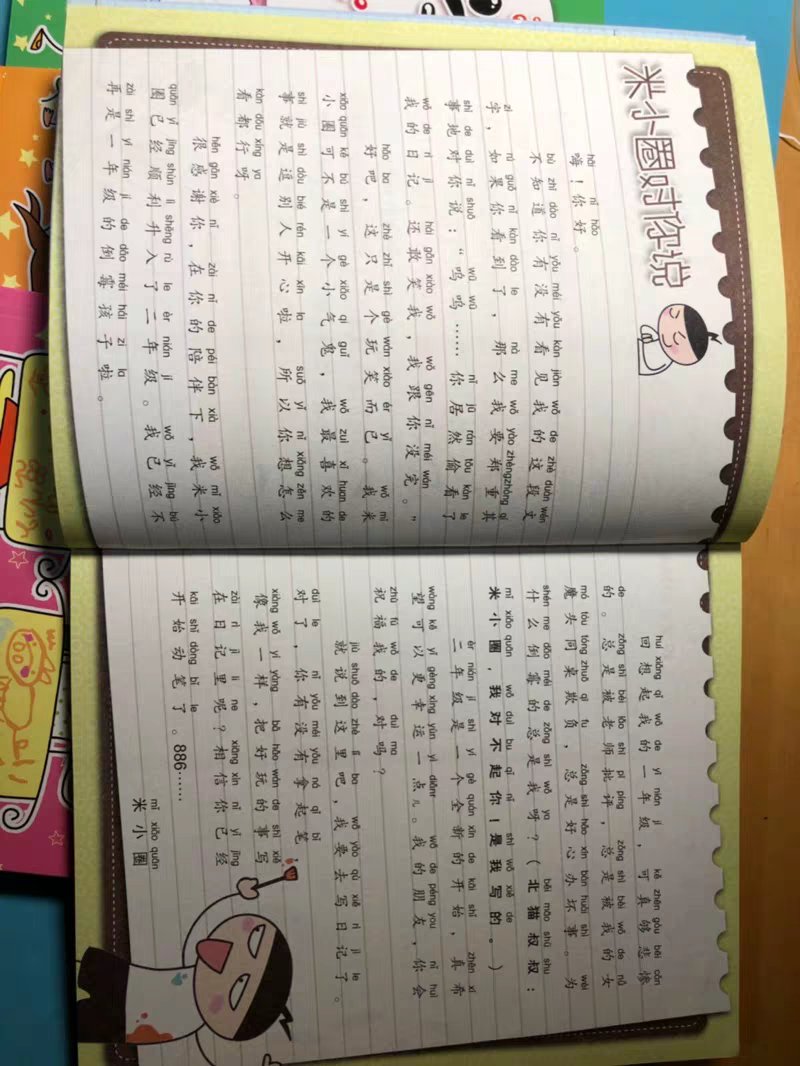 米小圈对你说
hāi nǐ hǎo
嗨！你好。
bù zhī dào nǐ yǒu méi yǒu kàn jiàn wǒ de zhè duàn wén
不知道你有没有看见我的这段文
zì rú guǒ nǐ kàn dào le nà me wǒ yào zhèngzhòng qí
字，如果你看到了，那么我要郑重其
shì de duì nǐ shuō wū wū nǐ jū rán tōu kàn le
事地对你说：“呜呜……你居然偷看了
wǒ de rì jì hái gǎn xiào wǒ wǒ gēn nǐ méi wán
我的日记。还敢笑我，我跟你没完。”
hǎo ba zhè zhǐ shì gè wán xiào ér yǐ wǒ mǐ
好吧，这只是个玩笑而已。我米
xiǎo quān kě bú shì yí gè xiǎo qì guǐ wǒ zuì xǐ huan de
小圈可不是一个小气鬼，我最喜欢的
shì jiù shì dòu bié rén kāi xīn la suǒ yǐ nǐ xiǎng zěn me
事就是逗别人开心啦，所以你想怎么
kàn dōu xíng ya
看都行呀。
hěn gǎn xiè nǐ zài nǐ de péi bàn xià wǒ mǐ xiǎo
很感谢你，在你的陪伴下，我米小
quān yǐ jīng shùn lì shēng rù le èr nián jí wǒ yǐ jīng bú
圈已经顺利升入了二年级。我已经不
zài shì yī nián jí de dǎo méi hái zi la
再是一年级的倒霉孩子啦。
huí xiǎng qǐ wǒ de yī nián jí kě zhēn gòu bēi cǎn
回想起我的一年级，可真够悲惨
de zǒng shì bèi lǎo shī pī píng zǒng shì bèi wǒ de nǚ
的。总是被老师批评，总是被我的女
mó tóu tóng zhuō qī fu zǒng shì hǎo xīn bàn huài shì wèi
魔头同桌欺负，总是好心办坏事。为
shén me dǎo méi de zǒng shì wǒ ya běi māo shū shu
什么倒霉的总是我呀？（北猫叔叔：
mǐ xiǎo quān wǒ duì bu qǐ nǐ shì wǒ xiě de
米小圈，我对不起你！是我写的。）
èr nián jí shì yí gè quán xīn de kāi shǐ zhēn xī
二年级是一个全新的开始，真希
wàng kě yǐ gèng xìng yùn yì diǎnr wǒ de péng you nǐ huì
望可以更幸运一点儿。我的朋友，你会
zhù fú wǒ de duì ma
祝福我的，对吗？
jiù shuō dào zhè lǐ ba wǒ yào qù xiě rì jì le
就说到这里吧，我要去写日记了。
duì le nǐ yǒu méi yǒu ná qǐ bǐ
对了，你有没有拿起笔，
xiàng wǒ yí yàng bǎ hǎo wán de shì xiě
像我一样，把好玩的事写
zài rì jì lǐ ne xiāng xìn nǐ yǐ jīng
在日记里呢？相信你已经
kāi shǐ dòng bǐ le
开始动笔了。886……
mǐ xiǎo quān
米小圈